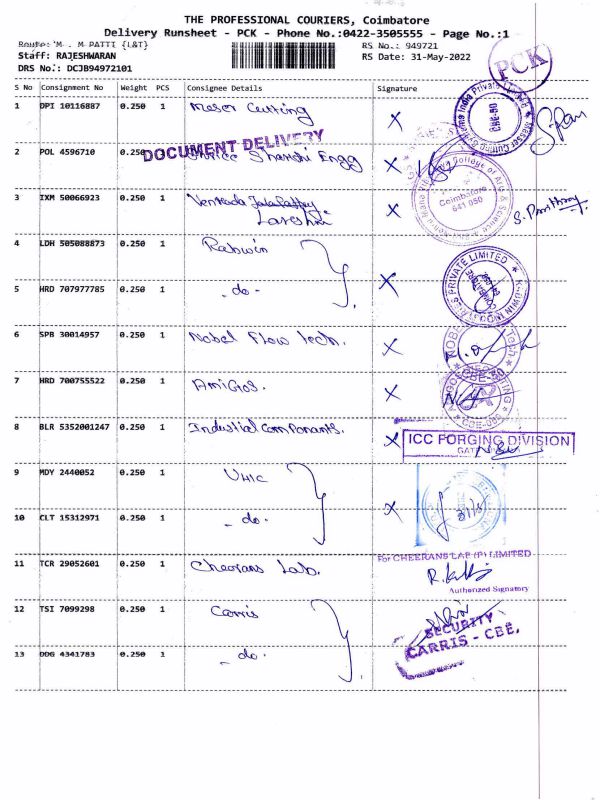 THE PROFESSIONAL COURIERS, Coimbatore
Delivery Runsheet - PCK - Phone No.:0422-3505555 - Page No.:1
RS No.: 949721
Staff: RAJESHWARAN RS Date: 31-May-2022
DRS No.: DCJB94972101
PCK
S No Consignment No Weight PCS Consignee Details Signature
1 DPI 10116887 0.250 1 Meser Cutting
CBE-50
DOCUMENT DELIVERY
2 POL 4596710 0.250 Engg
3 IXM 50066923 0.250 1
Coimbatore
641 050
4 LDH 505088873 0.250 1 Rabwin
PRIVATE LIMITED
5 HRD 707977785 0.250 1 - do -
6 SPB 30014957 0.250 1 Nobel Flow Tech.
7 HRD 700755522 0.250 1 Amigos.
CBE-50
8 BLR 5352001247 0.250 1 Industial Componants.
ICC FORGING DIVISION
9 MDY 2440052 0.250 1 UHIC
10 CLT 15312971 0.250 1 - do -
For CHEERANS LAB (P) LIMITED
11 TCR 29052601 0.250 1 Cheerans Lab.
Authorized Signatory
12 TSI 7099298 0.250 1 Carris
SECURITY
CARRIS - CBE.
13 DDG 4341783 0.250 1 - do -